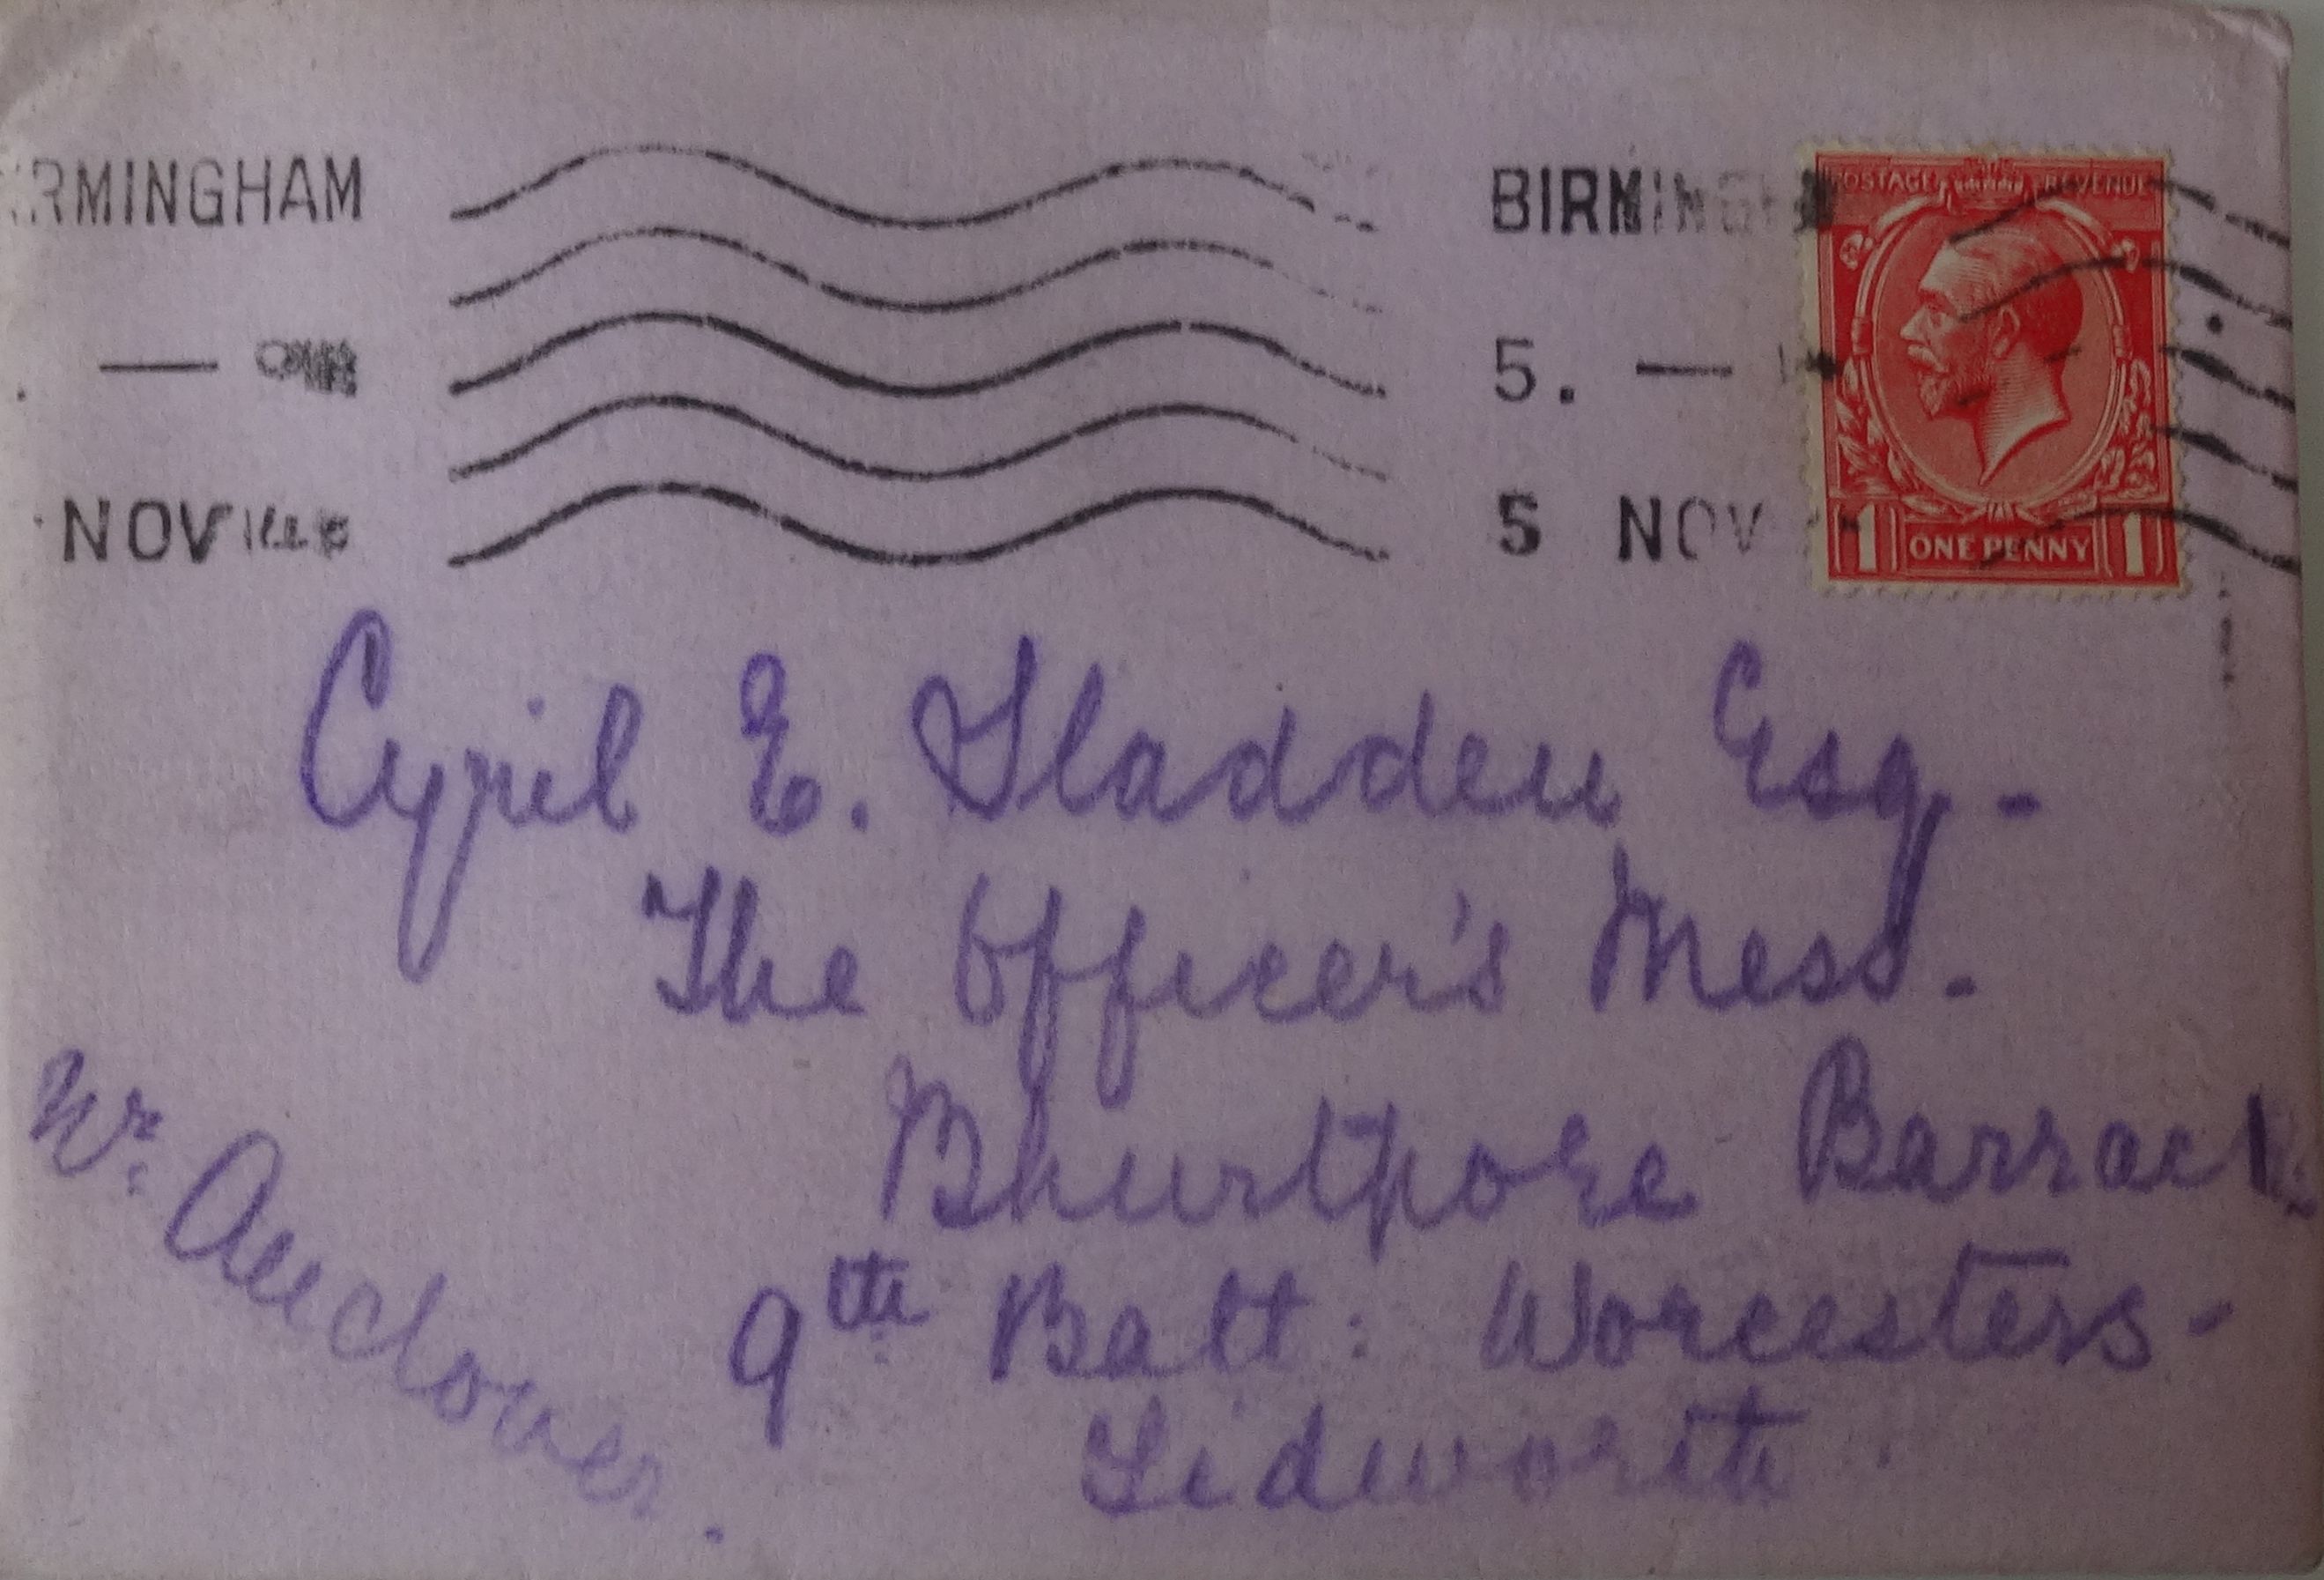 BIRMINGHAM
5. —
5 NOV
POSTAGE REVENUE
1 ONE PENNY 1
Cyril E. Sladden Esq.
The Officer's Mess.
Bhurtpore Barracks
9th Batt: Worcesters.
Tidworth
Nr. Andover.